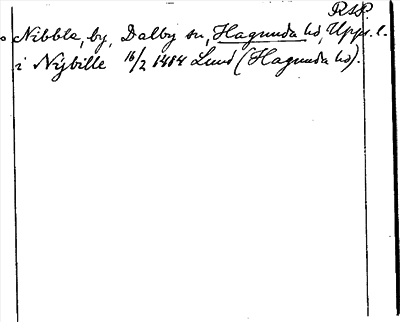 RAP.
Nibble, by, Dalby sn, Hagunda hd, Upps. l.
i Nybille 16/2 1484 Lund (Hagunda hd).